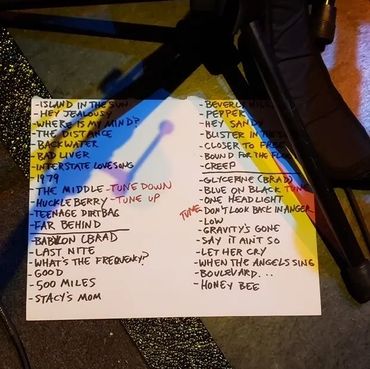 -ISLAND IN THE SUN
-HEY JEALOUSY
-WHERE IS MY MIND?
-THE DISTANCE
-BACKWATER
-BAD LIVER
-INTERSTATE LOVESONG
-1979
-THE MIDDLE -TUNE DOWN
-HUCKLEBERRY -TUNE UP
-TEENAGE DIRTBAG
-FAR BEHIND
-BABYLON (BRAD)
-LAST NITE
-WHAT'S THE FREQUENCY?
-GOOD
-500 MILES
-STACY'S MOM
-BEVERLY
-PEPPER
-HEY SANDY
-BLISTER IN THE
-CLOSER TO FREE
-BOUND FOR THE FLOOR
-CREEP
-GLYCERINE (BRAD)
-BLUE ON BLACK TUNE
-ONE HEADLIGHT
TUNE -DON'T LOOK BACK IN ANGER
-LOW
-GRAVITY'S GONE
-SAY IT AIN'T SO
-LET HER CRY
-WHEN THE ANGELS SING
-BOULEVARD...
-HONEY BEE